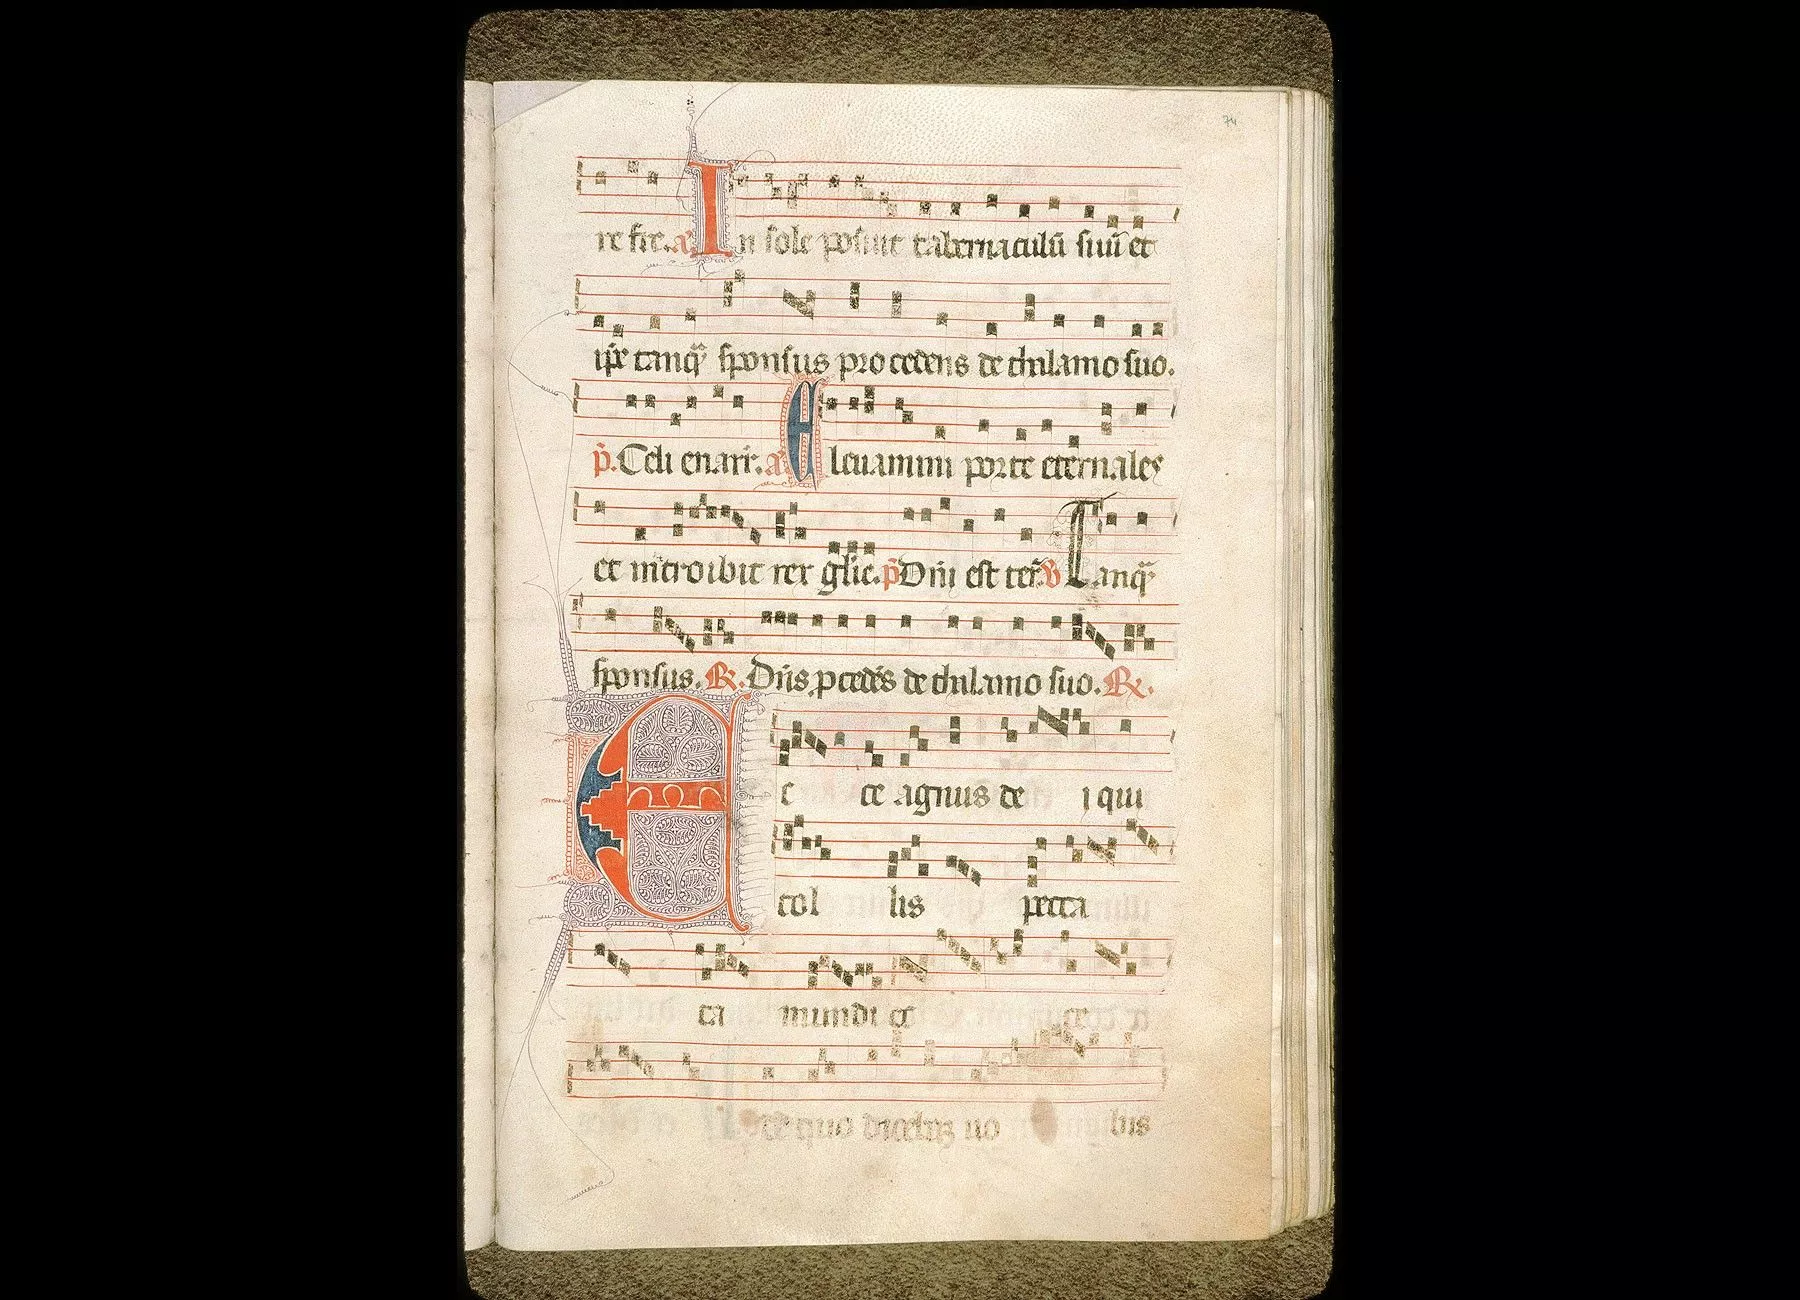 74
re fr̄e. a̅ In sole posuit tabernaculū suū et
ip̄e tanq̄ sponsus procedens de thalamo suo.
p̄. Celi enarr̄. a̅ Eleuamini porte eternales
et introibit rex glīe. p̄ Dn̄i est ter̄. V̄ Tanq̄
sponsus. ℟. Dn̄s ꝓcedēs de thalamo suo. ℟.
Ec ce agnus de i qui
tol lis pecca
ta mundi ec ce
de quo diceba no bis